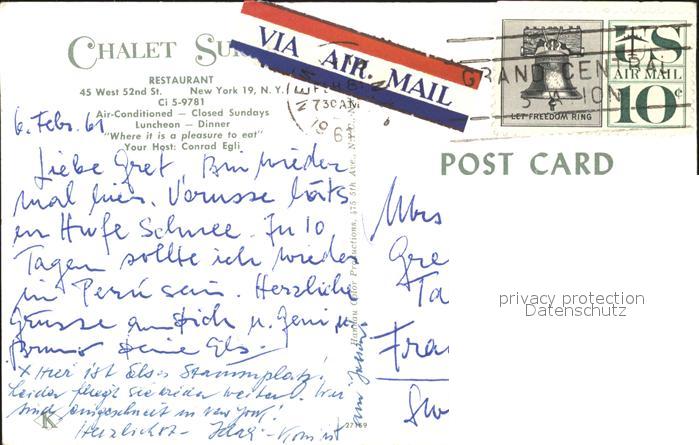 CHALET SUI
RESTAURANT
45 West 52nd St. New York 19, N. Y.
Ci 5-9781
Air-Conditioned — Closed Sundays
Luncheon — Dinner
"Where it is a pleasure to eat"
Your Host: Conrad Egli
VIA AIR MAIL
GRAND CENTRAL
730AM
LET FREEDOM RING
US
AIR MAIL
10¢
POST CARD
6. Febr. 61
Liebe Gret, Bin wieder
mal hier. Draussen hats
en Hufe Schnee. In 10
Tagen sollte ich wieder
in Perú sein. Herzliche
Grüsse an Dich u.
Bruno Deine Els.
x Hier ist Elses Stammplatz!
Leider fliegt sie wieder weiter. Wir
sind eingeschneit in New York!
Herzlichst
Mrs
Gre
Ta
Fra
Sw
475 5th Ave., N.Y.
Color Productions,
K
27769
privacy protection
Datenschutz